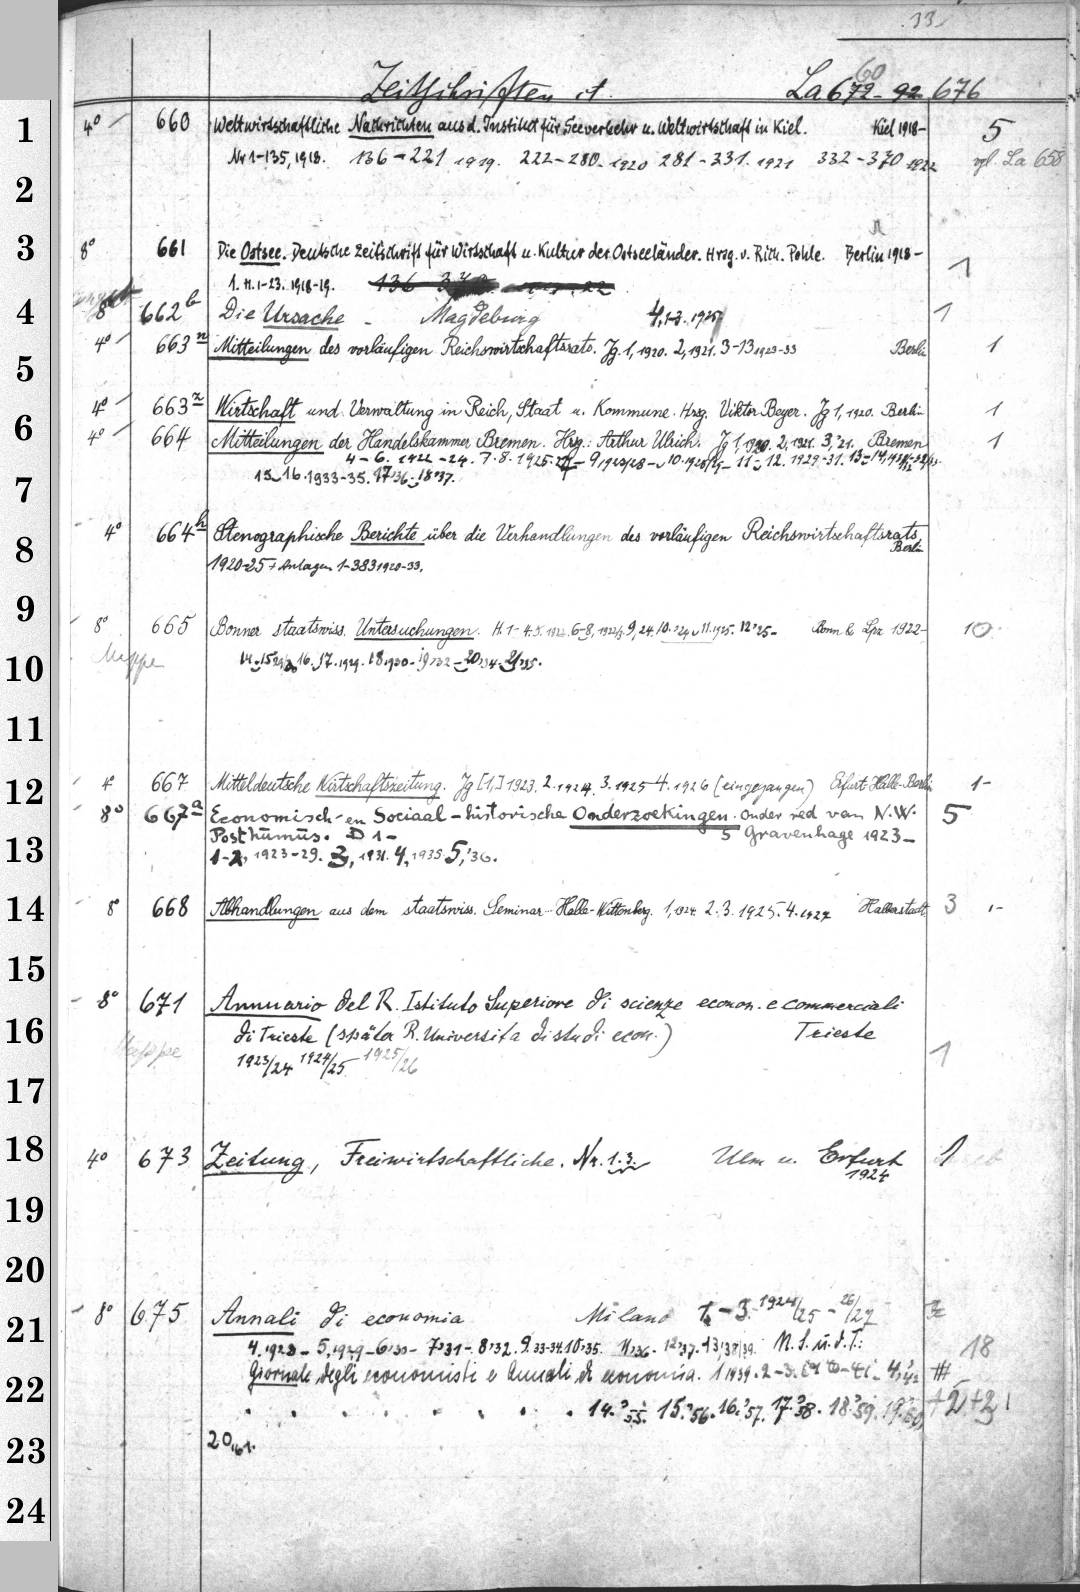 33
Zeitschriften A. La 660 672-92 676
1 4° 660 Weltwirtschaftliche Nachrichten aus d. Institut für Seeverkehr u. Weltwirtschaft in Kiel. Kiel 1918- 5
Nr 1-135, 1918. 136-221 1919. 222-280. 1920 281-331. 1921 332-370 1922 vgl. La 658
2
3 8° 661 Die Ostsee. Deutsche Zeitschrift für Wirtschaft u. Kultur der Ostseeländer. Hrsg. v. Rich. Pohle. Berlin 1918- 1
1. H. 1-23. 1918-19.
4 8° 662b Die Ursache - Magdeburg 4,1-3. 1925 1
4° 663n Mitteilungen des vorläufigen Reichswirtschaftsrats. Jg. 1, 1920. 2, 1921. 3-13 1923-33 Berlin 1
5
4° 663z Wirtschaft und Verwaltung in Reich, Staat u. Kommune. Hrsg. Viktor Beyer. Jg 1, 1920. Berlin 1
6 4° 664 Mitteilungen der Handelskammer Bremen. Hrg.: Arthur Ulrich. Jg 1, 1920. 2, 1921. 3, '21. Bremen 1
4-6. 1922-24. 7. 8. 1925. 9, 10. 11-12. 1929-31. 13-14,
15-16. 1933-35. 17 '36. 18 '37.
7
8 4° 664h Stenographische Berichte über die Verhandlungen des vorläufigen Reichswirtschaftsrats.
Berlin
1920-25 + Anlagen 1-383 1920-33.
9
8° 665 Bonner staatswiss. Untersuchungen. H. 1-4. 5. 6-8, 9, 24. 10. '24 11. 1925. 12 '25- Bonn & Lpz 1922- 10
10 Mappe 14. 15 16. 17. 1929. 18 1930- 19 '32- 20 '34- 21 '35.
11
12 4° 667 Mitteldeutsche Wirtschaftszeitung. Jg [1,] 1923. 2. 1924. 3. 1925 4. 1926 (eingegangen) Erfurt-Halle-Berlin 1-
8° 667a Economisch- en Sociaal-historische Onderzoekingen. Onder red van N. W. 5
Posthumus. D 1- S Gravenhage 1923-
13 1-2, 1923-29. 3, 1931. 4, 1935. 5, '36.
14 8° 668 Abhandlungen aus dem staatswiss. Seminar Halle-Wittenberg. 1, 1924. 2. 3. 1925. 4. 1927 Halberstadt. 3 1-
15
8° 671 Annuario del R. Istituto Superiore di scienze econom. e commerciali
16 di Trieste (später R. Universita di studi econ.) Trieste
Mappe 1923/24 1924/25 1925/26 1
17
18 4° 673 Zeitung, Freiwirtschaftliche. Nr. 1.3. Ulm u. Erfurt 1
1924
19
20
8° 675 Annali di economia Milano 1-3. 1924/25 - 26/27
21 4. 1928- 5, 1929- 6 '30- 7 '31-. 8 '32. 9. 33-34. 10 '35. 11 '36. 12 '37. 13, '38/39. M. S. u. d. T.: 18
22 Giornale degli economisti e Annali di economia. 1 1939. 2-3.
14. '55. 15. '56. 16. '57. 17. '58. 18. '59. 19. '60, +2 +2
23 20, '61.
24